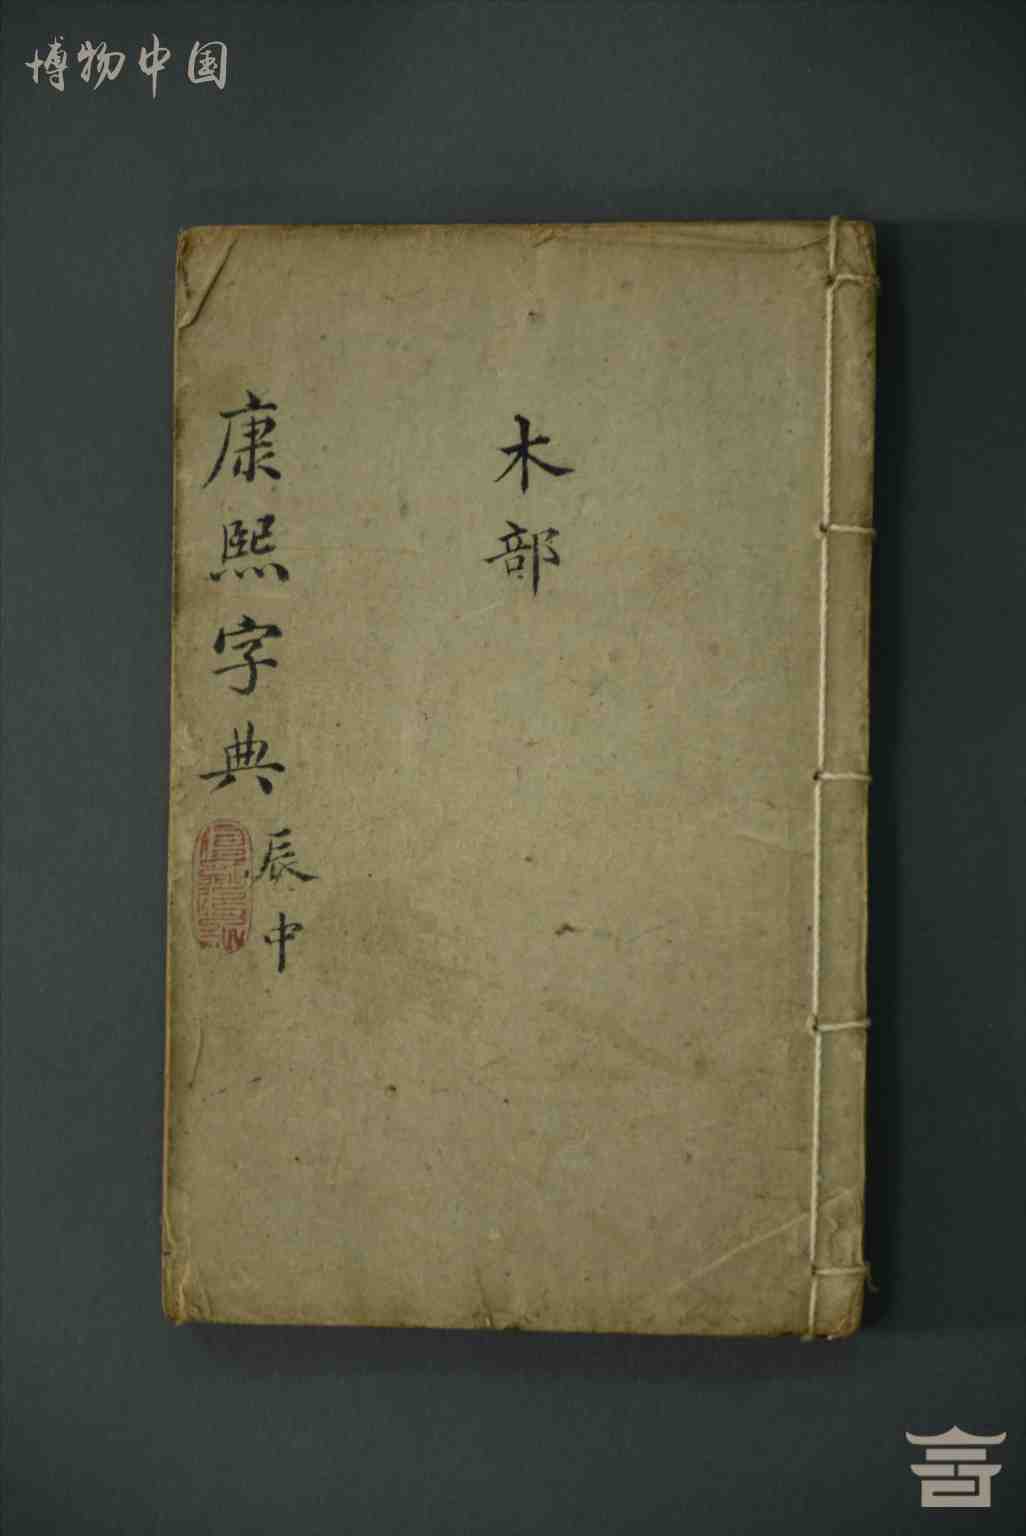 博物中国
木部
康熙字典
辰中